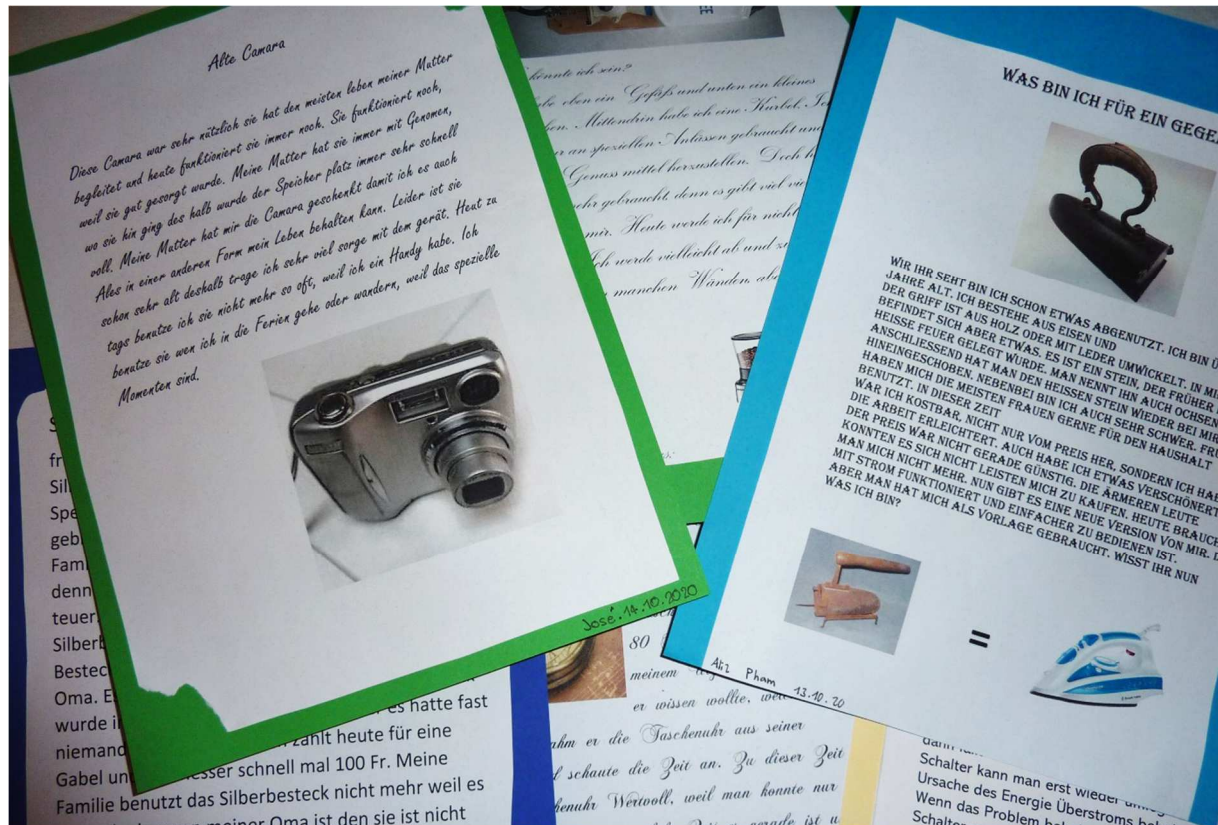 Alte Camara
Diese Camara war sehr nützlich sie hat den meisten leben meiner Mutter
begleitet und heute funktioniert sie immer noch. Sie funktioniert noch,
weil sie gut gesorgt wurde. Meine Mutter hat sie immer mit Genomen,
wo sie hin ging des halb wurde der Speicher platz immer sehr schnell
voll. Meine Mutter hat mir die Camara geschenkt damit ich es auch
Ales in einer anderen Form mein Leben behalten kann. Leider ist sie
schon sehr alt deshalb trage ich sehr viel sorge mit dem gerät. Heut zu
tags benutze ich sie nicht mehr so oft, weil ich ein Handy habe. Ich
benutze sie wen ich in die Ferien gehe oder wandern, weil das spezielle
Momenten sind.
José. 14.10.2020
könnte ich sein?
oben ein Gefäß und unten ein kleines
Mittendrin habe ich eine Kurbel.
an speziellen Anlässen gebraucht
Genuss mittel herzustellen. Doch
gebraucht, denn es gibt viel
mir. Heute werde ich für
Ich werde vielleicht ab und
manchen Wänden,
WAS BIN ICH FÜR EIN
WIR IHR SEHT BIN ICH SCHON ETWAS ABGENUTZT. ICH BIN
JAHRE ALT. ICH BESTEHE AUS EISEN UND
DER GRIFF IST AUS HOLZ ODER MIT LEDER UMWICKELT. IN
BEFINDET SICH ABER ETWAS, ES IST EIN STEIN, DER FRÜHER
HEISSE FEUER GELEGT WURDE. MAN NENNT IHN AUCH
ANSCHLIESSEND HAT MAN DEN HEISSEN STEIN WIEDER BEI MIR
HINEINGESCHOBEN, NEBENBEI BIN ICH AUCH SEHR SCHWER.
HABEN MICH DIE MEISTEN FRAUEN GERNE FÜR DEN HAUSHALT
BENUTZT. IN DIESER ZEIT
WAR ICH KOSTBAR, NICHT NUR VOM PREIS HER, SONDERN ICH
DIE ARBEIT ERLEICHTERT. AUCH HABE ICH ETWAS VERSCHÖNERT
DER PREIS WAR NICHT GERADE GÜNSTIG. DIE ÄRMEREN LEUTE
KONNTEN ES SICH NICHT LEISTEN MICH ZU KAUFEN. HEUTE
MAN MICH NICHT MEHR. NUN GIBT ES EINE NEUE VERSION VON MIR.
MIT STROM FUNKTIONIERT UND EINFACHER ZU BEDIENEN IST.
ABER MAN HAT MICH ALS VORLAGE GEBRAUCHT. WISST IHR NUN
WAS ICH BIN?
=
Pham 13.10.20
denn
teuer.
Oma.
es hatte fast
wurde
niemand
zahlt heute für eine
Gabel
schnell mal 100 Fr. Meine
Familie benutzt das Silberbesteck nicht mehr weil es
meiner Oma ist den sie ist nicht
80
meinem
er wissen wollte,
er die Taschenuhr aus seiner
schaute die Zeit an. Zu dieser Zeit
Wertvoll, weil man konnte nur
gerade ist
Schalter kann man erst wieder
Ursache des Energie Überstroms
Wenn das Problem